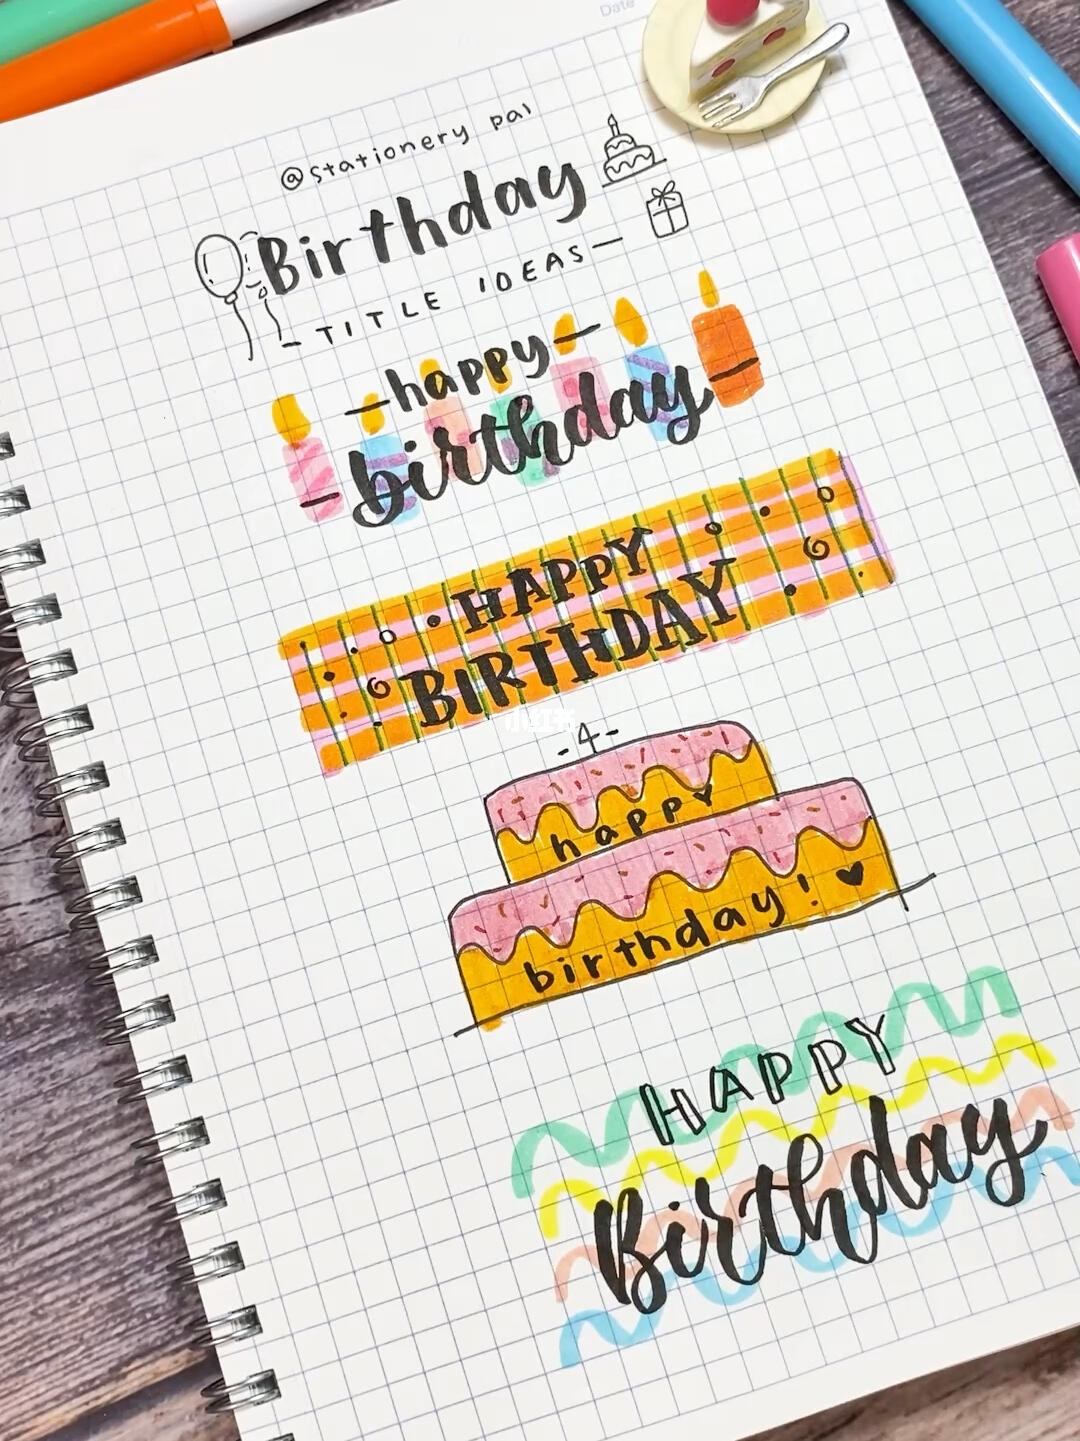 Date
@stationery pal
Birthday
- TITLE IDEAS -
-happy-
-birthday-
HAPPY
BIRTHDAY
小红书
-4-
happy
birthday!
HAPPY
Birthday